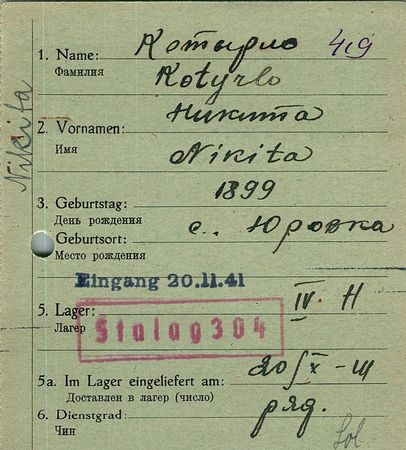 1. Name: Котырло 419
Фамилия Kotyrlo
Никита
2. Vornamen:
Имя Nikita
Nikita
1899
3. Geburtstag:
День рождения
с. Юровка
Geburtsort:
Место рождения
Eingang 20.11.41
5. Lager: IV. H
Лагерь Stalag 304
5a. Im Lager eingeliefert am:
Доставлен в лагерь (число)
6. Dienstgrad: ряд.
Чин
Sol